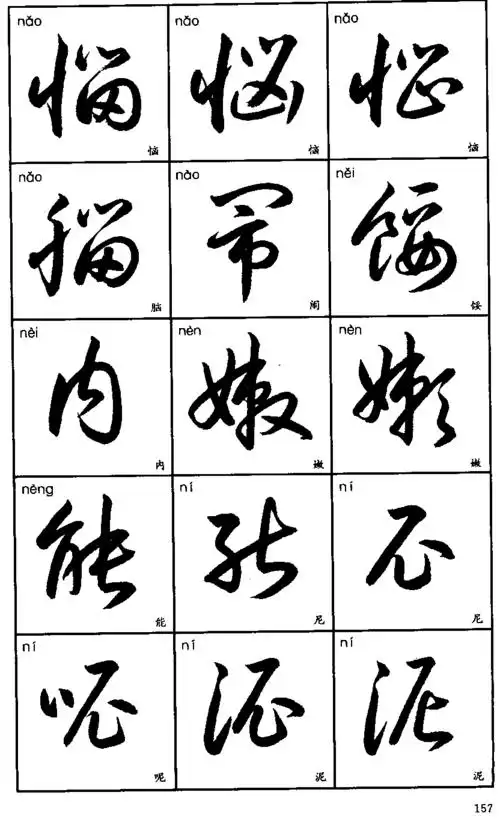 nǎo nǎo nǎo
恼 恼 恼
恼 恼 恼
nǎo nào něi
脑 闹 馁
脑 闹 馁
nèi nèn nèn
内 嫩 嫩
内 嫩 嫩
néng ní ní
能 尼 尼
能 尼 尼
ní ní ní
呢 泥 泥
呢 泥 泥
157